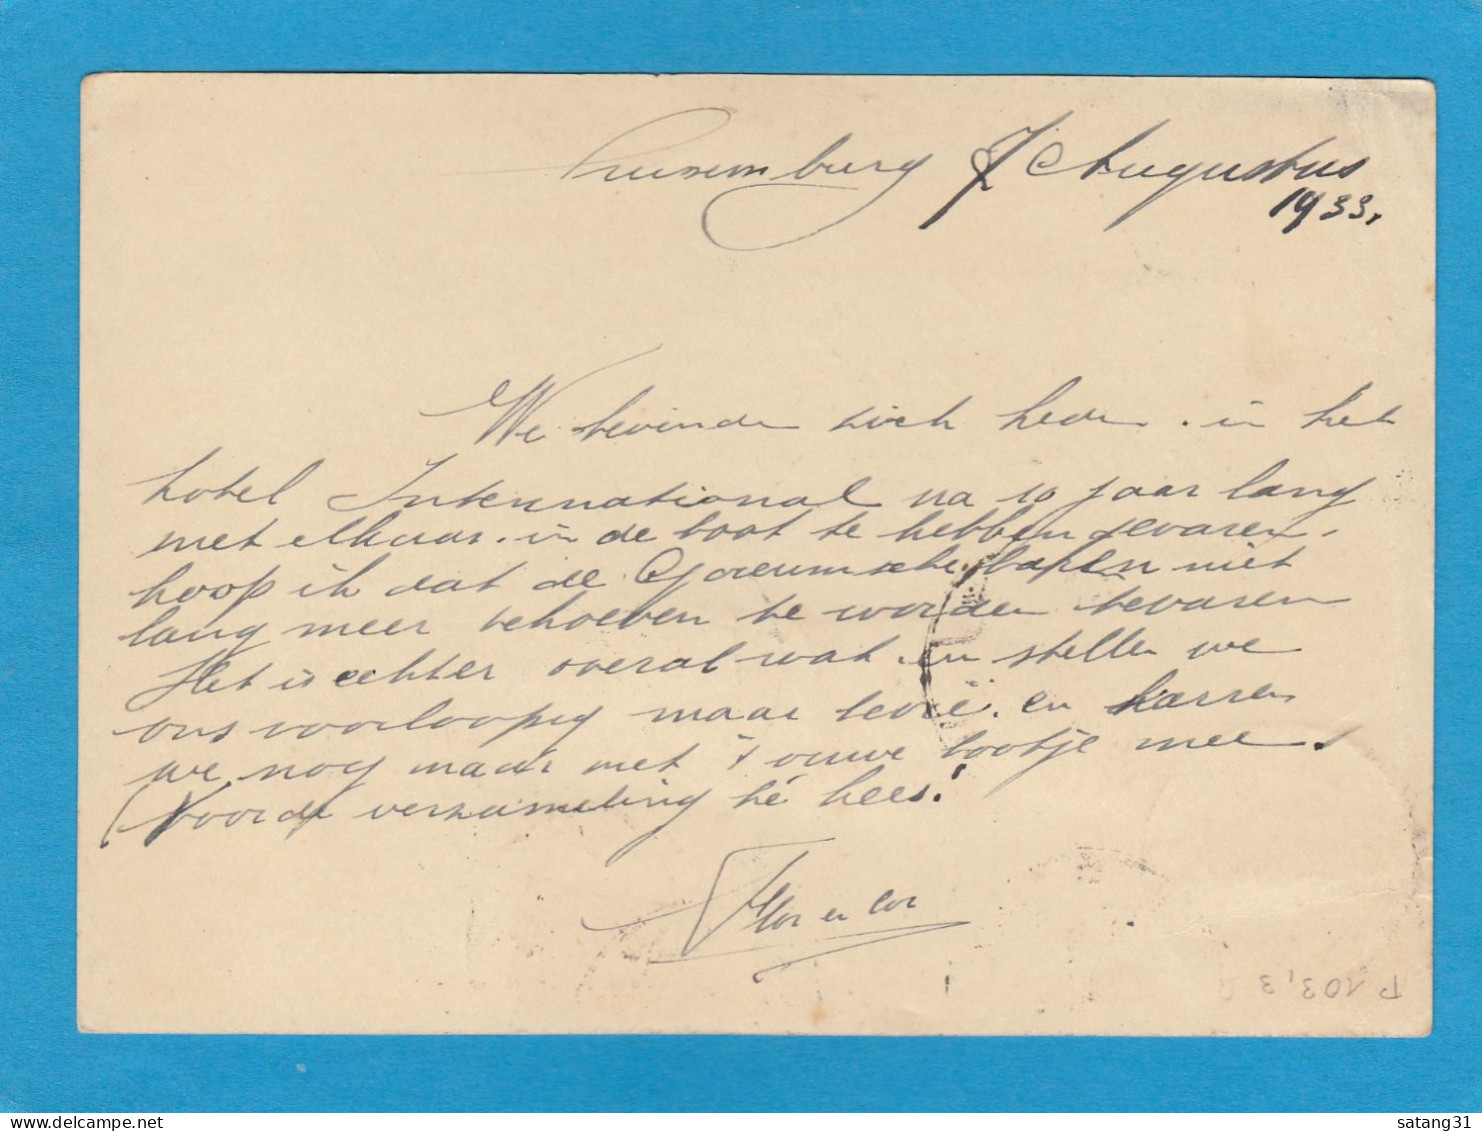 Luxemburg 7 Augustus
1933.
We bevinden zich heden in het
hotel International na 10 jaar lang
met elkaar in de boot te hebben gevaren.
hoop ik dat de Gorcumsche baren niet
lang meer behoeven te worden bevaren
Het is echter overal wat en stellen we
ons voorloopig maar tevre. en karren
we nog maar met 't ouwe bootje mee.
(Voor de verzameling hé Kees!
Flor en Cor
P 103,3
satang31